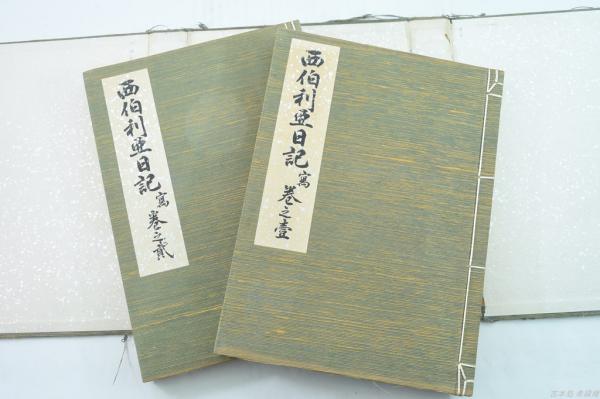 西伯利亜日記 寫 巻之貳
西伯利亜日記 寫 巻之壹